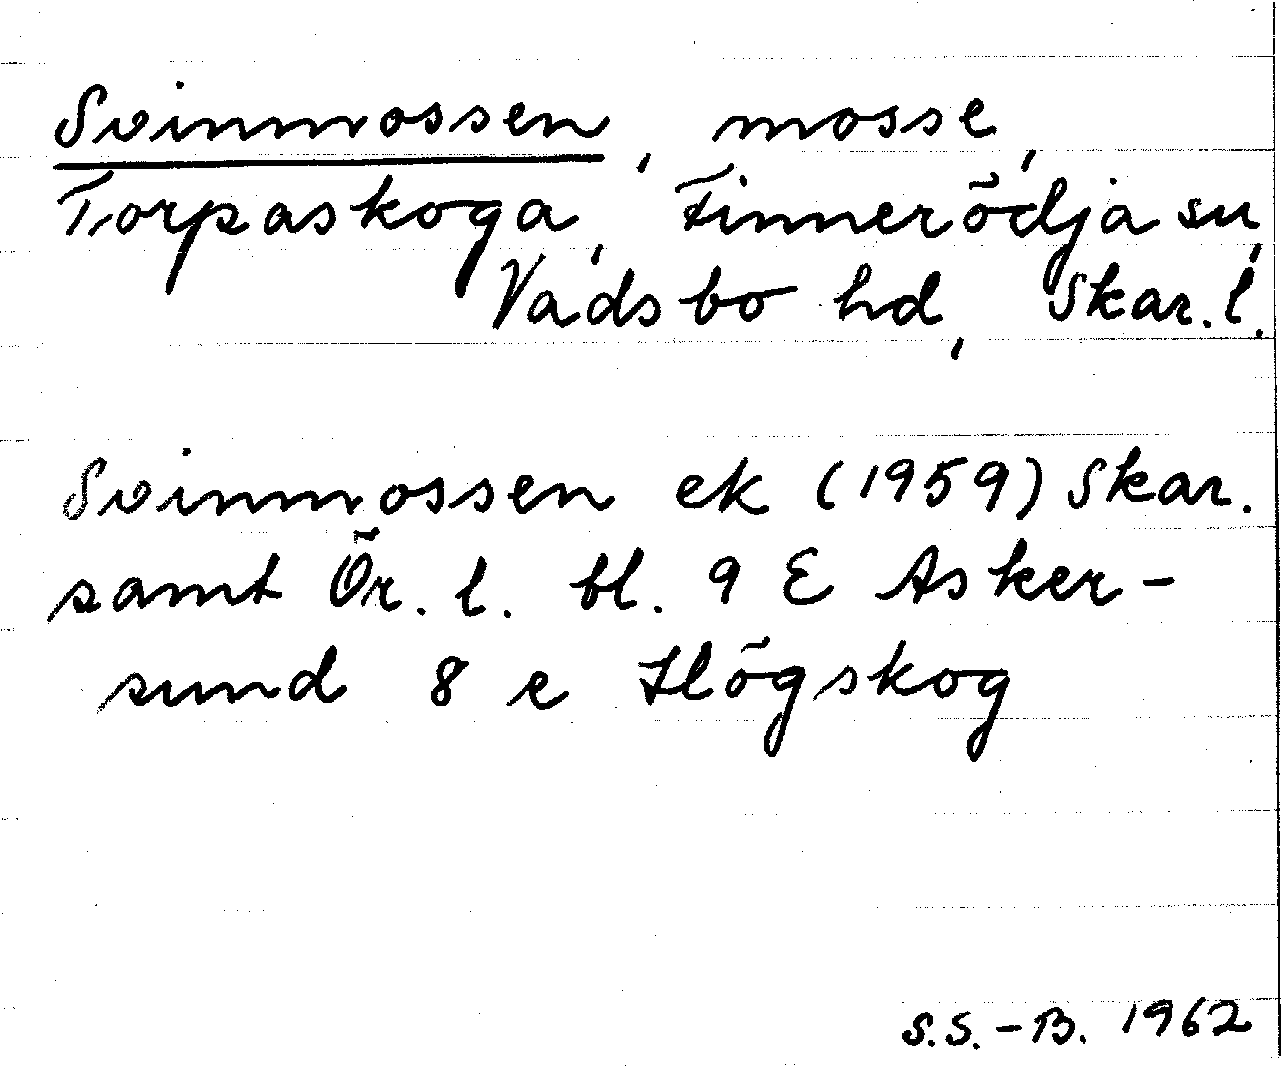 Svinmossen, mosse,
Torpaskoga, Finnerödja sn,
Vadsbo hd, Skar. l.
Svinmossen ek (1959) Skar.
samt Ör. l. bl. 9 E Asker-
sund 8 e Högskog
S.S.-B. 1962